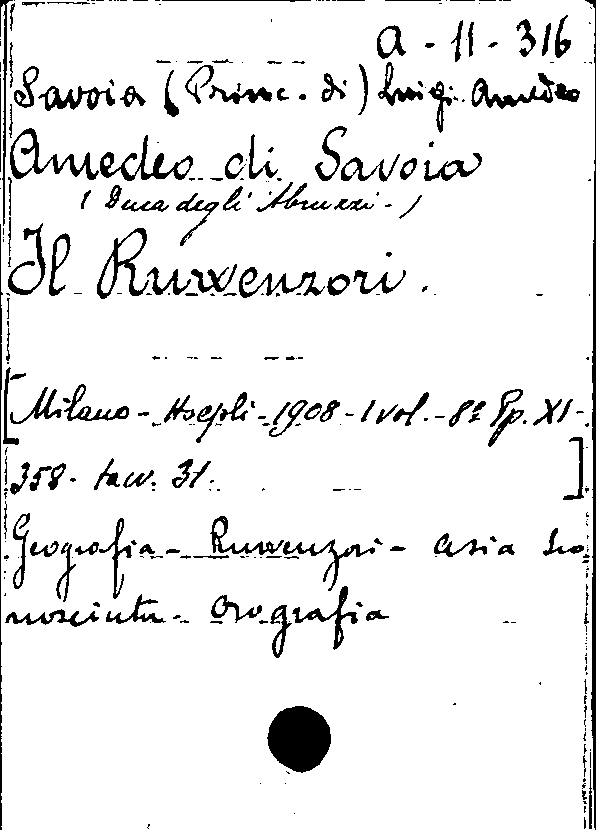 A - 11 - 316
Savoia (Princ. di) Luigi Amedeo
Amedeo di Savoia
(Duca degli Abruzzi.)
Il Ruwenzori.
[Milano - Hoepli - 1908 - 1 vol. - 8º Pp. XI -
358 - tav. 31.]
Geografia - Ruwenzori - Asia Sco
nosciuta - Orografia